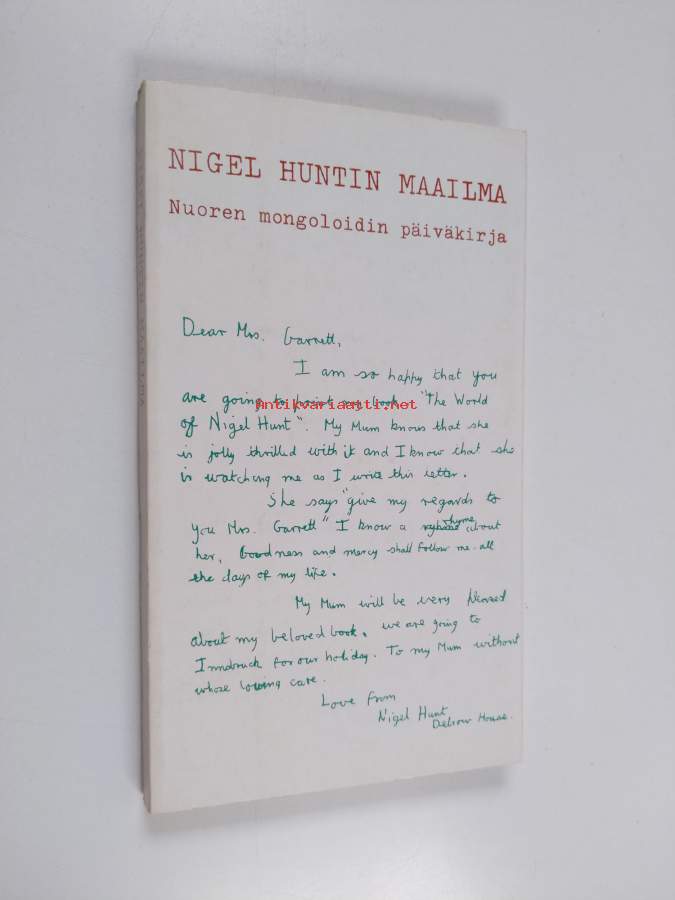 NIGEL HUNTIN MAAILMA
Nuoren mongoloidin päiväkirja
Dear Mrs. Garrett,
I am so happy that you
are going to print my book "The World
of Nigel Hunt". My Mum knows that she
is jolly thrilled with it and I know that she
is watching me as I write this letter.
She says "give my regards to
you Mrs. Garrett" I know a rhyme about
her, Goodness and mercy shall follow me all
the days of my life.
My Mum will be very pleased
about my beloved book. we are going to
Innsbruck for our holiday. To my Mum without
whose loving care.
Love from
Nigel Hunt
Delrow House.
Antikvariaatti.net